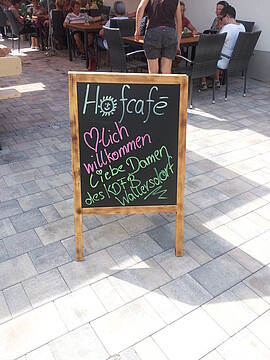 Hofcafé
♡lich
willkommen
Liebe Damen
des KDFB
Wallersdorf